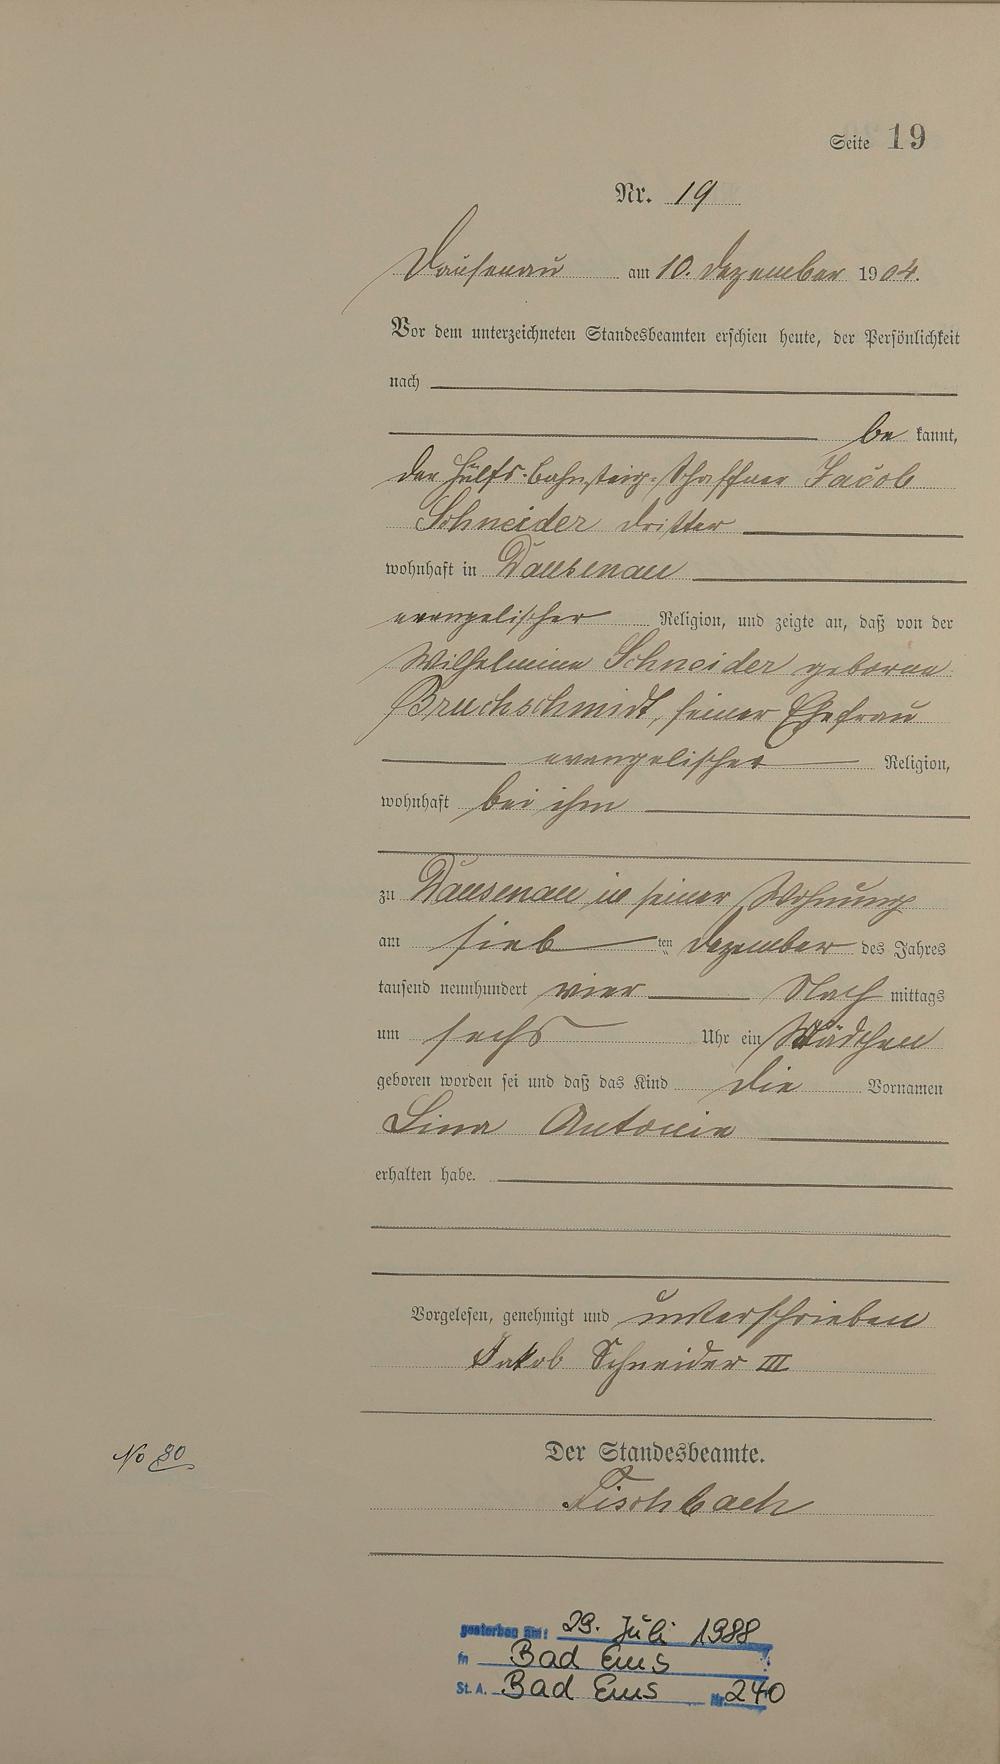 Seite 19
Nr. 19
Dausenau am 10. Dezember 1904.
Vor dem unterzeichneten Standesbeamten erschien heute, der Persönlichkeit
nach
be kannt,
der Hülfs-bahnsteig-schaffner Jacob
Schneider dritter
wohnhaft in Dausenau
evangelischer Religion, und zeigte an, daß von der
Wilhelmine Schneider geborene
Bruchschmidt, seiner Ehefrau
evangelischer Religion,
wohnhaft bei ihm
zu Dausenau in seiner Wohnung
am sieb ten Dezember des Jahres
tausend neunhundert vier Nach mittags
um sechs Uhr ein Mädchen
geboren worden sei und daß das Kind die Vornamen
Lina Antonie
erhalten habe.
Vorgelesen, genehmigt und unterschrieben
Jakob Schneider III
No 80
Der Standesbeamte.
Fischbach
gestorben am: 29. Juli 1988
in Bad Ems
St. A. Bad Ems Nr. 240